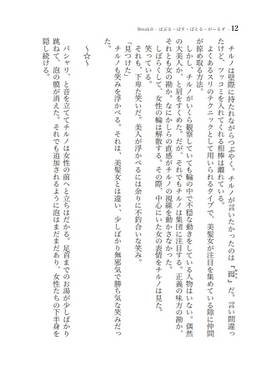 Break③・ばぶる・ばす・ばとる・がーるず 12
チルノは壁際に持たれながらつぶやく。チルノが言いたかったのは『罠』だ。言い間違っ
たけど、ツッコミを入れてくれる相棒は離れている。
あるスリのテクニックとして用いられるタイプで、美髪女が注目を集めている陰に仲間
が掠め取る方法。
しかし、チルノがいくら観察していても輪の中で不穏な動きをしている人物はいない。偶然
の大美人か、と肩をすくめた。だが、それでもチルノは集団に注目する。正義の味方の勘か、
それとも女の勘か。なにかしらの直感がチルノの視線を動かさなかった。
しばらくして、女性の輪は解散する。その際、中心にいた女の表情をチルノは見た。
笑っている。
それも、下卑た笑いだ。美人が浮かべるには余りに不釣合いな笑み。
「見つけた」
チルノも笑みを浮かべる。それは、美髪女とは違い、少しばかり無邪気で勝ち気な笑みだっ
た。
～☆～
バシャリ、と音を立ててチルノは女性の前へと立ちはだかる。足首までのお湯が少しばかり
跳ねて、泡の膜が消えた。それでも追加されるように泡はまだまだあり、女性たちの下半身を
隠し続ける。